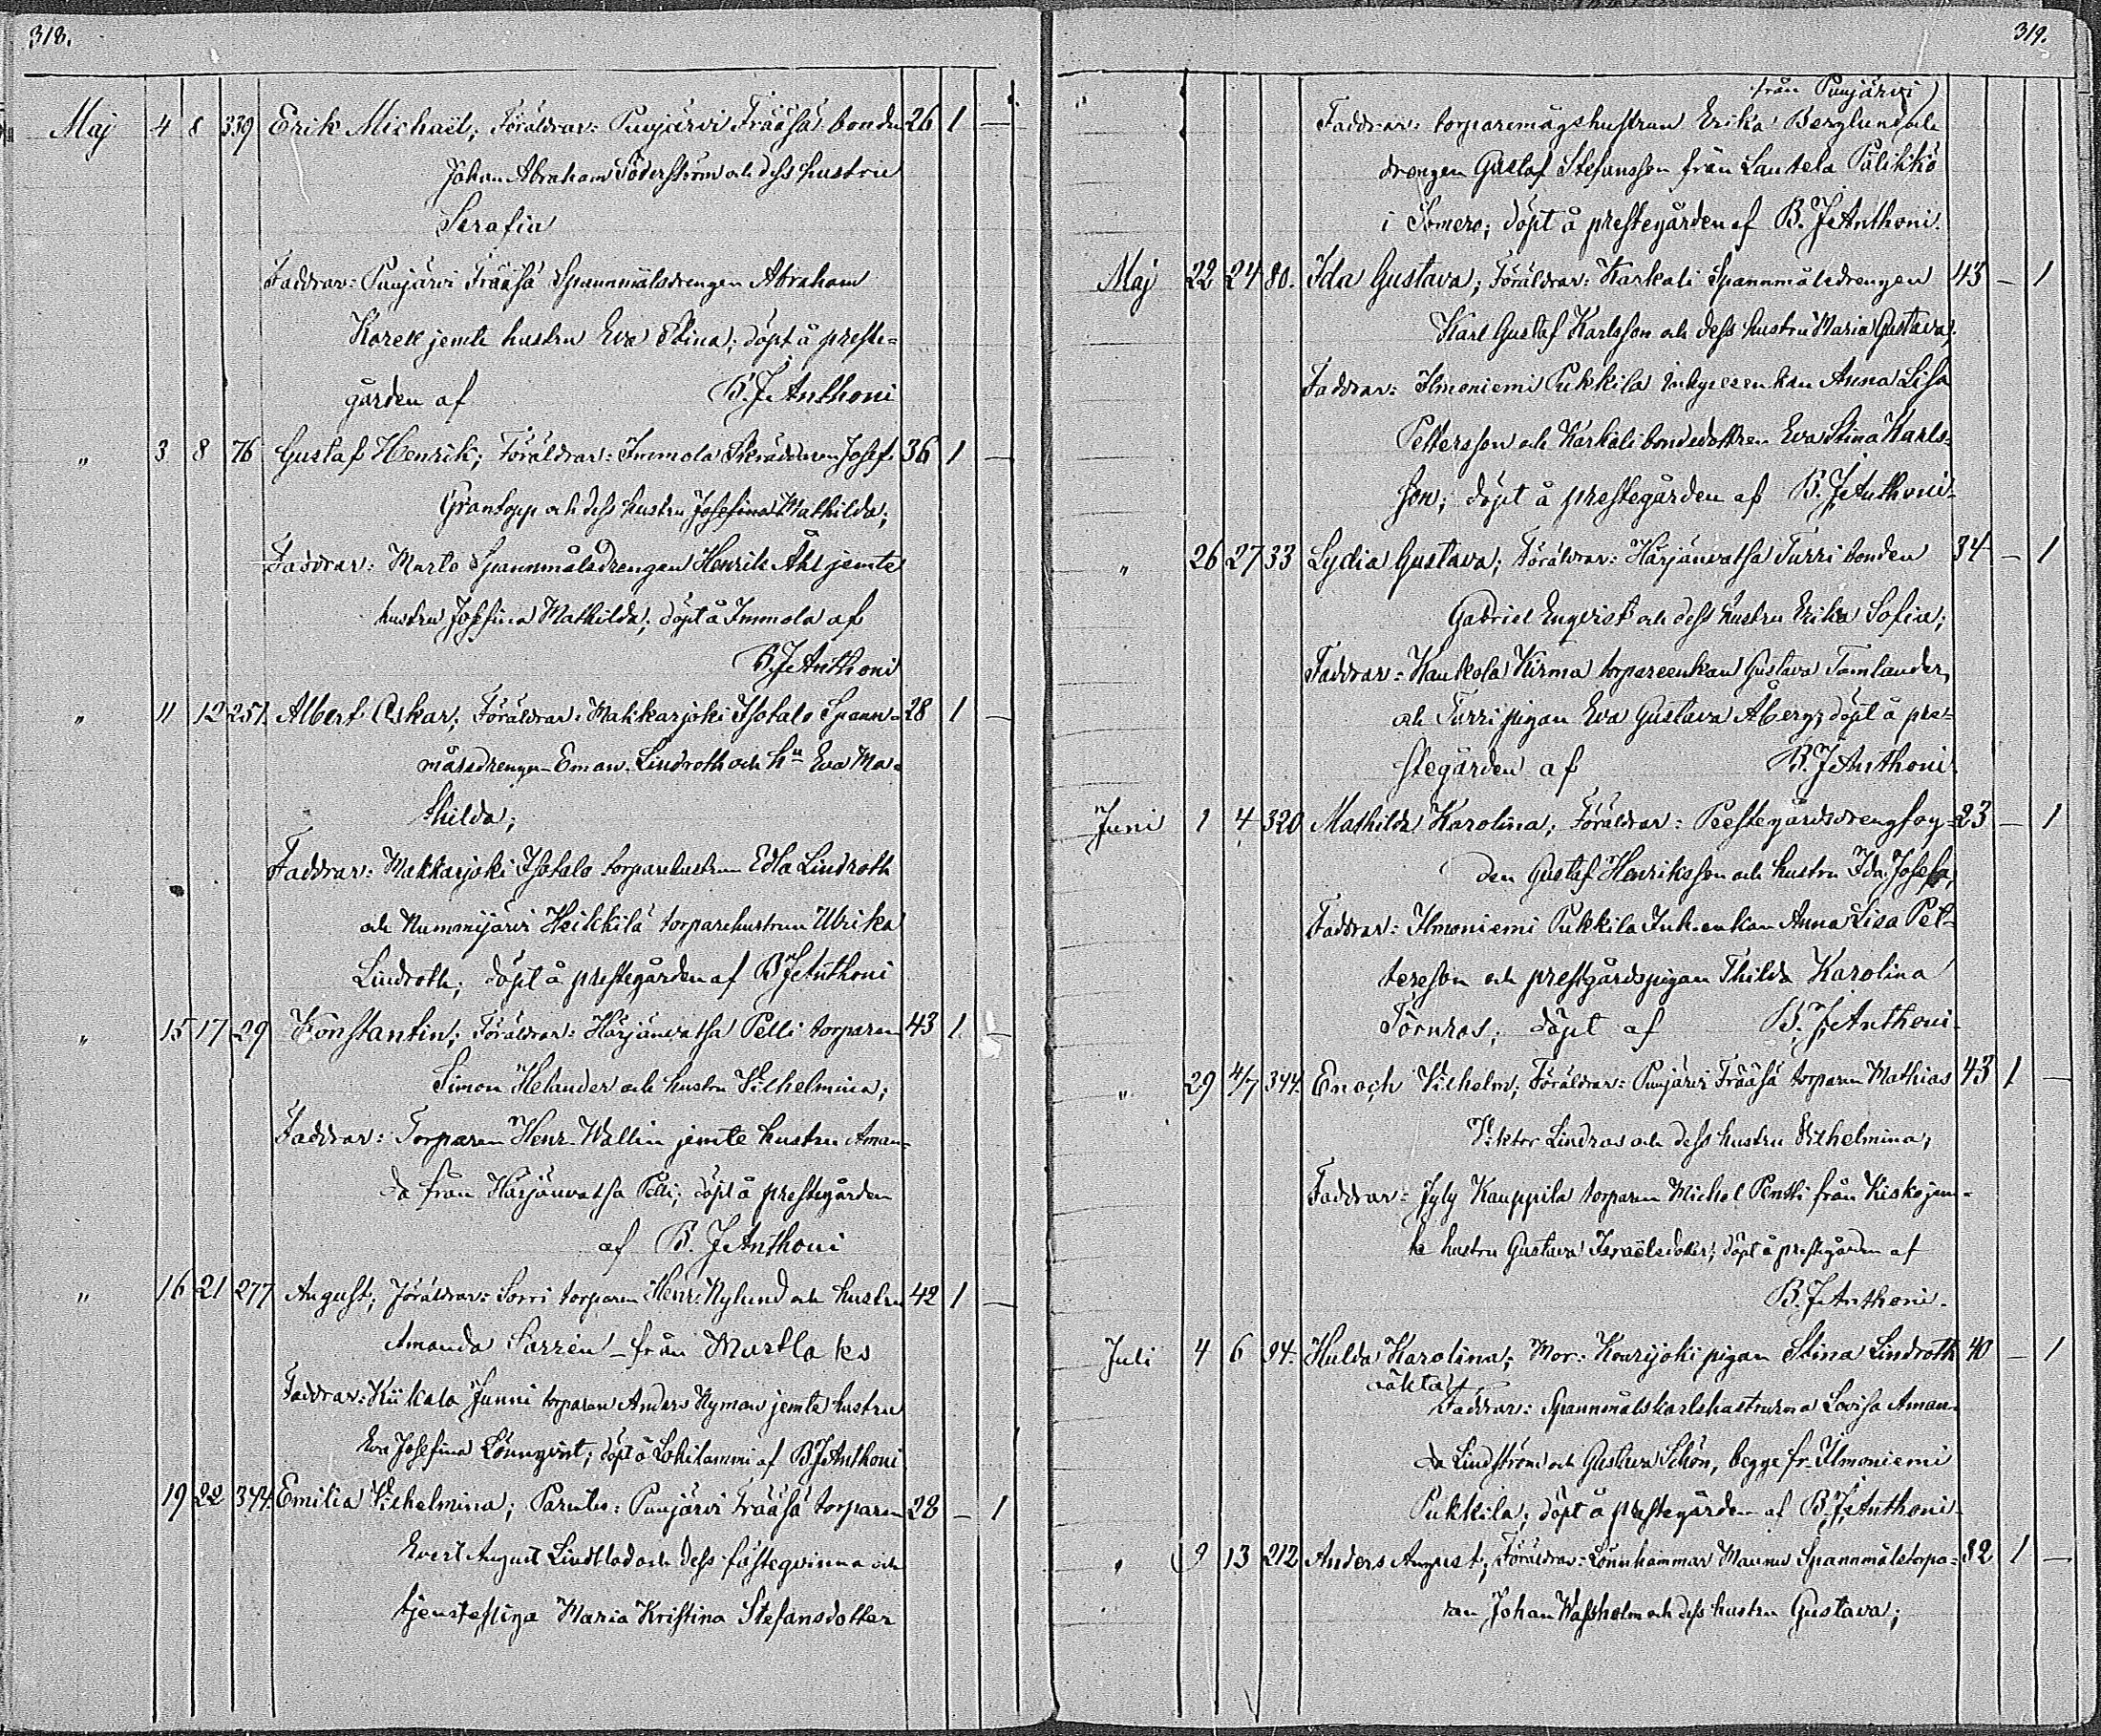 318.
Maj 4 8 339 Erik Michaël; Föräldrar: Punjärvi Frääsä bonden 26 1 —
Johan Abraham Söderström och dess hustru
Serafia
Faddrar: Punjärvi Frääsä Spannmålsdrengen Abraham
Korek jemte hustru Eva Stina; döpt å preste-
gården af B. J. Anthoni
" 3 8 76 Gustaf Henrik; Föräldrar: Immola Skräddaren Josef 36 1 —
Grantopp och dess hustru Josefina Mathilda;
Faddrar: Murto Spannmålsdrengen Henrik Åhl jemte
hustru Josefina Mathilda; döpt å Immola af
B. J. Anthoni
" 11 12 251 Albert Oskar; Föräldrar: Makkarjoki Isotalo Spann- 28 1 —
målsdrengen Eman. Lindroth och hu Eva Ma-
thilda;
Faddrar: Makkarjoki Isotalo torparehustrun Edla Lindroth
och Nummijärvi Heikkilä torparehustrun Ulrika
Lindroth; döpt å prestegården af B J Anthoni
" 15 17 29 Konstantin; Föräldrar: Härjänvatsa Pelli torparen 43 1 —
Simon Helander och hustru Vilhelmina;
Faddrar: Torparen Henr. Wallin jemte hustru Aman-
da från Härjänvatsa Pelli; döpt å prestegården
af B. J. Anthoni
" 16 21 277 August; Föräldrar: Sorri torparen Henr: Nylund och hustru 42 1 —
Amanda Sarren – från Murtla ks
Faddrar: Kiikala Junni torparen Anders Nyman jemte hustru
Eva Josefina Lönnqvist; döpt å Lohilammi af B J Anthoni
19 22 344. Emilia Vilhelmina; Parents: Punjärvi Frääsä torparen 28 — 1
Evert August Lindblad och dess fästeqvinna och
tjensteflicka Maria Kristina Stefansdotter
319.
från Punjärvi
Faddrar: torparemågshustrun Erika Berglund och
drengen Gustaf Stefansson från Lautela Pälikkö
i Somero; döpt å prestegården af B. J. Anthoni.
Maj 22 24 80. Ida Gustava; Föräldrar: Karkali Spannmålsdrengen 43 — 1
Karl Gustaf Karlsson och dess hustru Maria Gustava;
Faddrar: Ilmoniemi Pukkila Inhyresenkan Anna Lisa
Pettersson och Karkali bondedottren Eva Stina Karls-
son; döpt å prestegården af B. J. Anthoni
" 26 27 33 Lydia Gustava; Föräldrar: Härjänvatsa Turri bonden 34 — 1
Gabriel Enqvist och dess hustru Erika Sofia;
Faddrar: Haukola Kirma torpareenkan Gustava Tamlander
och Turri pigan Eva Gustava Åberg; döpt å pre-
stegården af B. J. Anthoni
Juni 1 4 320 Mathilda Karolina; Föräldrar: Prestegårdsdrengfog- 23 — 1
den Gustaf Henriksson och hustru Ida Josefa;
Faddrar: Ilmoniemi Pukkila Inh.enkan Anna Lisa Pet-
tersson och prestgårdspigan Thilda Karolina
Törnros; döpt af B. J. Anthoni
" 29 4/7 344. Enoch Vilhelm; Föräldrar: Punjärvi Frääsä torparen Mathias 43 1 —
Viktor Lindros och dess hustru Vilhelmina;
Faddrar: Jyly Kauppila torparen Michel Pentti från Kisko jem-
te hustru Gustava Israëlsdotter; döpt å prestegården af
B. J. Anthoni.
Juli 4 6 94. Hulda Karolina; Mor: Kourjoki pigan Stina Lindroth 40 — 1
oäkta
Faddrar: Spannmålskarlshustrurna Lovisa Aman-
da Lindström och Gustava Schön, begge fr. Ilmoniemi
Pukkila; döpt å prestegården af B. J. Anthoni
" 9 13 212 Anders August; Föräldrar: Lönnhammar Maunu Spannmålstorpa- 32 1 —
ren Johan Wassholm och dess hustru Gustava;